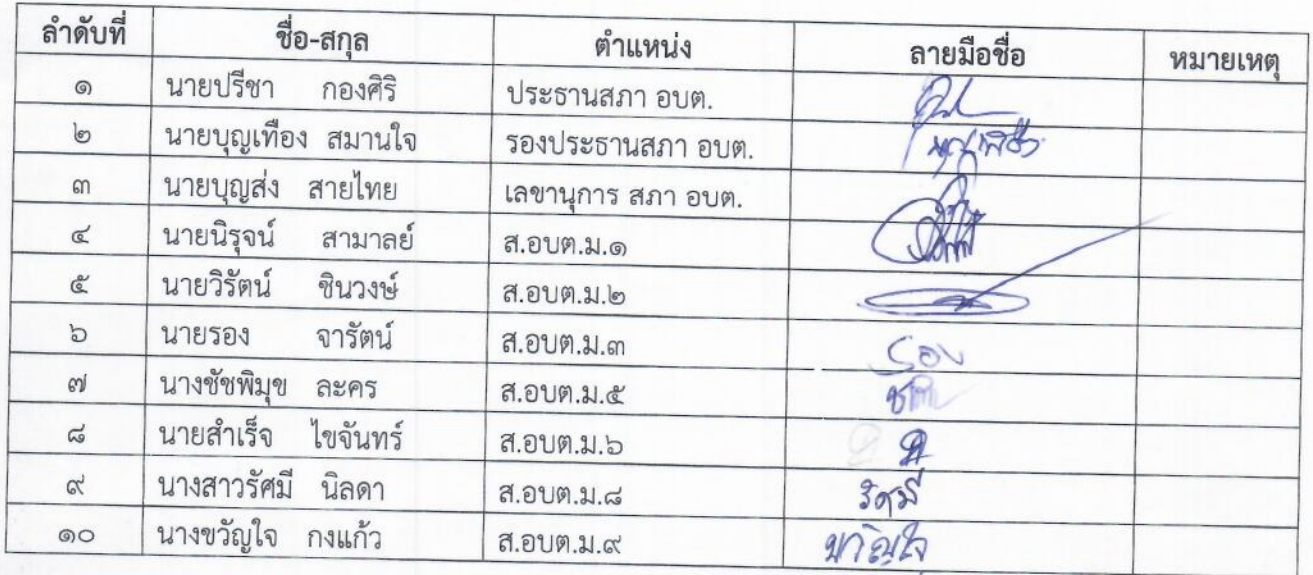 ลำดับที่ ชื่อ-สกุล ตำแหน่ง ลายมือชื่อ หมายเหตุ
๑ นายปรีชา กองศิริ ประธานสภา อบต.
๒ นายบุญเทือง สมานใจ รองประธานสภา อบต.
๓ นายบุญส่ง สายไทย เลขานุการ สภา อบต.
๔ นายนิรุจน์ สามาลย์ ส.อบต.ม.๑
๕ นายวิรัตน์ ชินวงษ์ ส.อบต.ม.๒
๖ นายรอง จารัตน์ ส.อบต.ม.๓ รอง
๗ นางชัชพิมุข ละคร ส.อบต.ม.๕
๘ นายสำเร็จ ไขจันทร์ ส.อบต.ม.๖
๙ นางสาวรัศมี นิลดา ส.อบต.ม.๘ รัศมี
๑๐ นางขวัญใจ กงแก้ว ส.อบต.ม.๙ ขวัญใจ